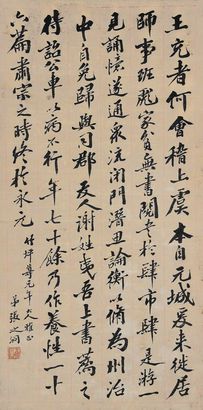 王充者何會稽上虞本自元城爰來徙居
師事班彪家貧無書閱書於肆市肆是遊一
見誦憶遂通眾流閉門潛思論衡以脩為州治
中自免歸與同郡友人謝姓夷吾上書薦之
待詔公車以病不行年七十餘乃作養性一十
六篇肅宗之時終於永元
竹坪尊兄年大人雅正
弟張之洞